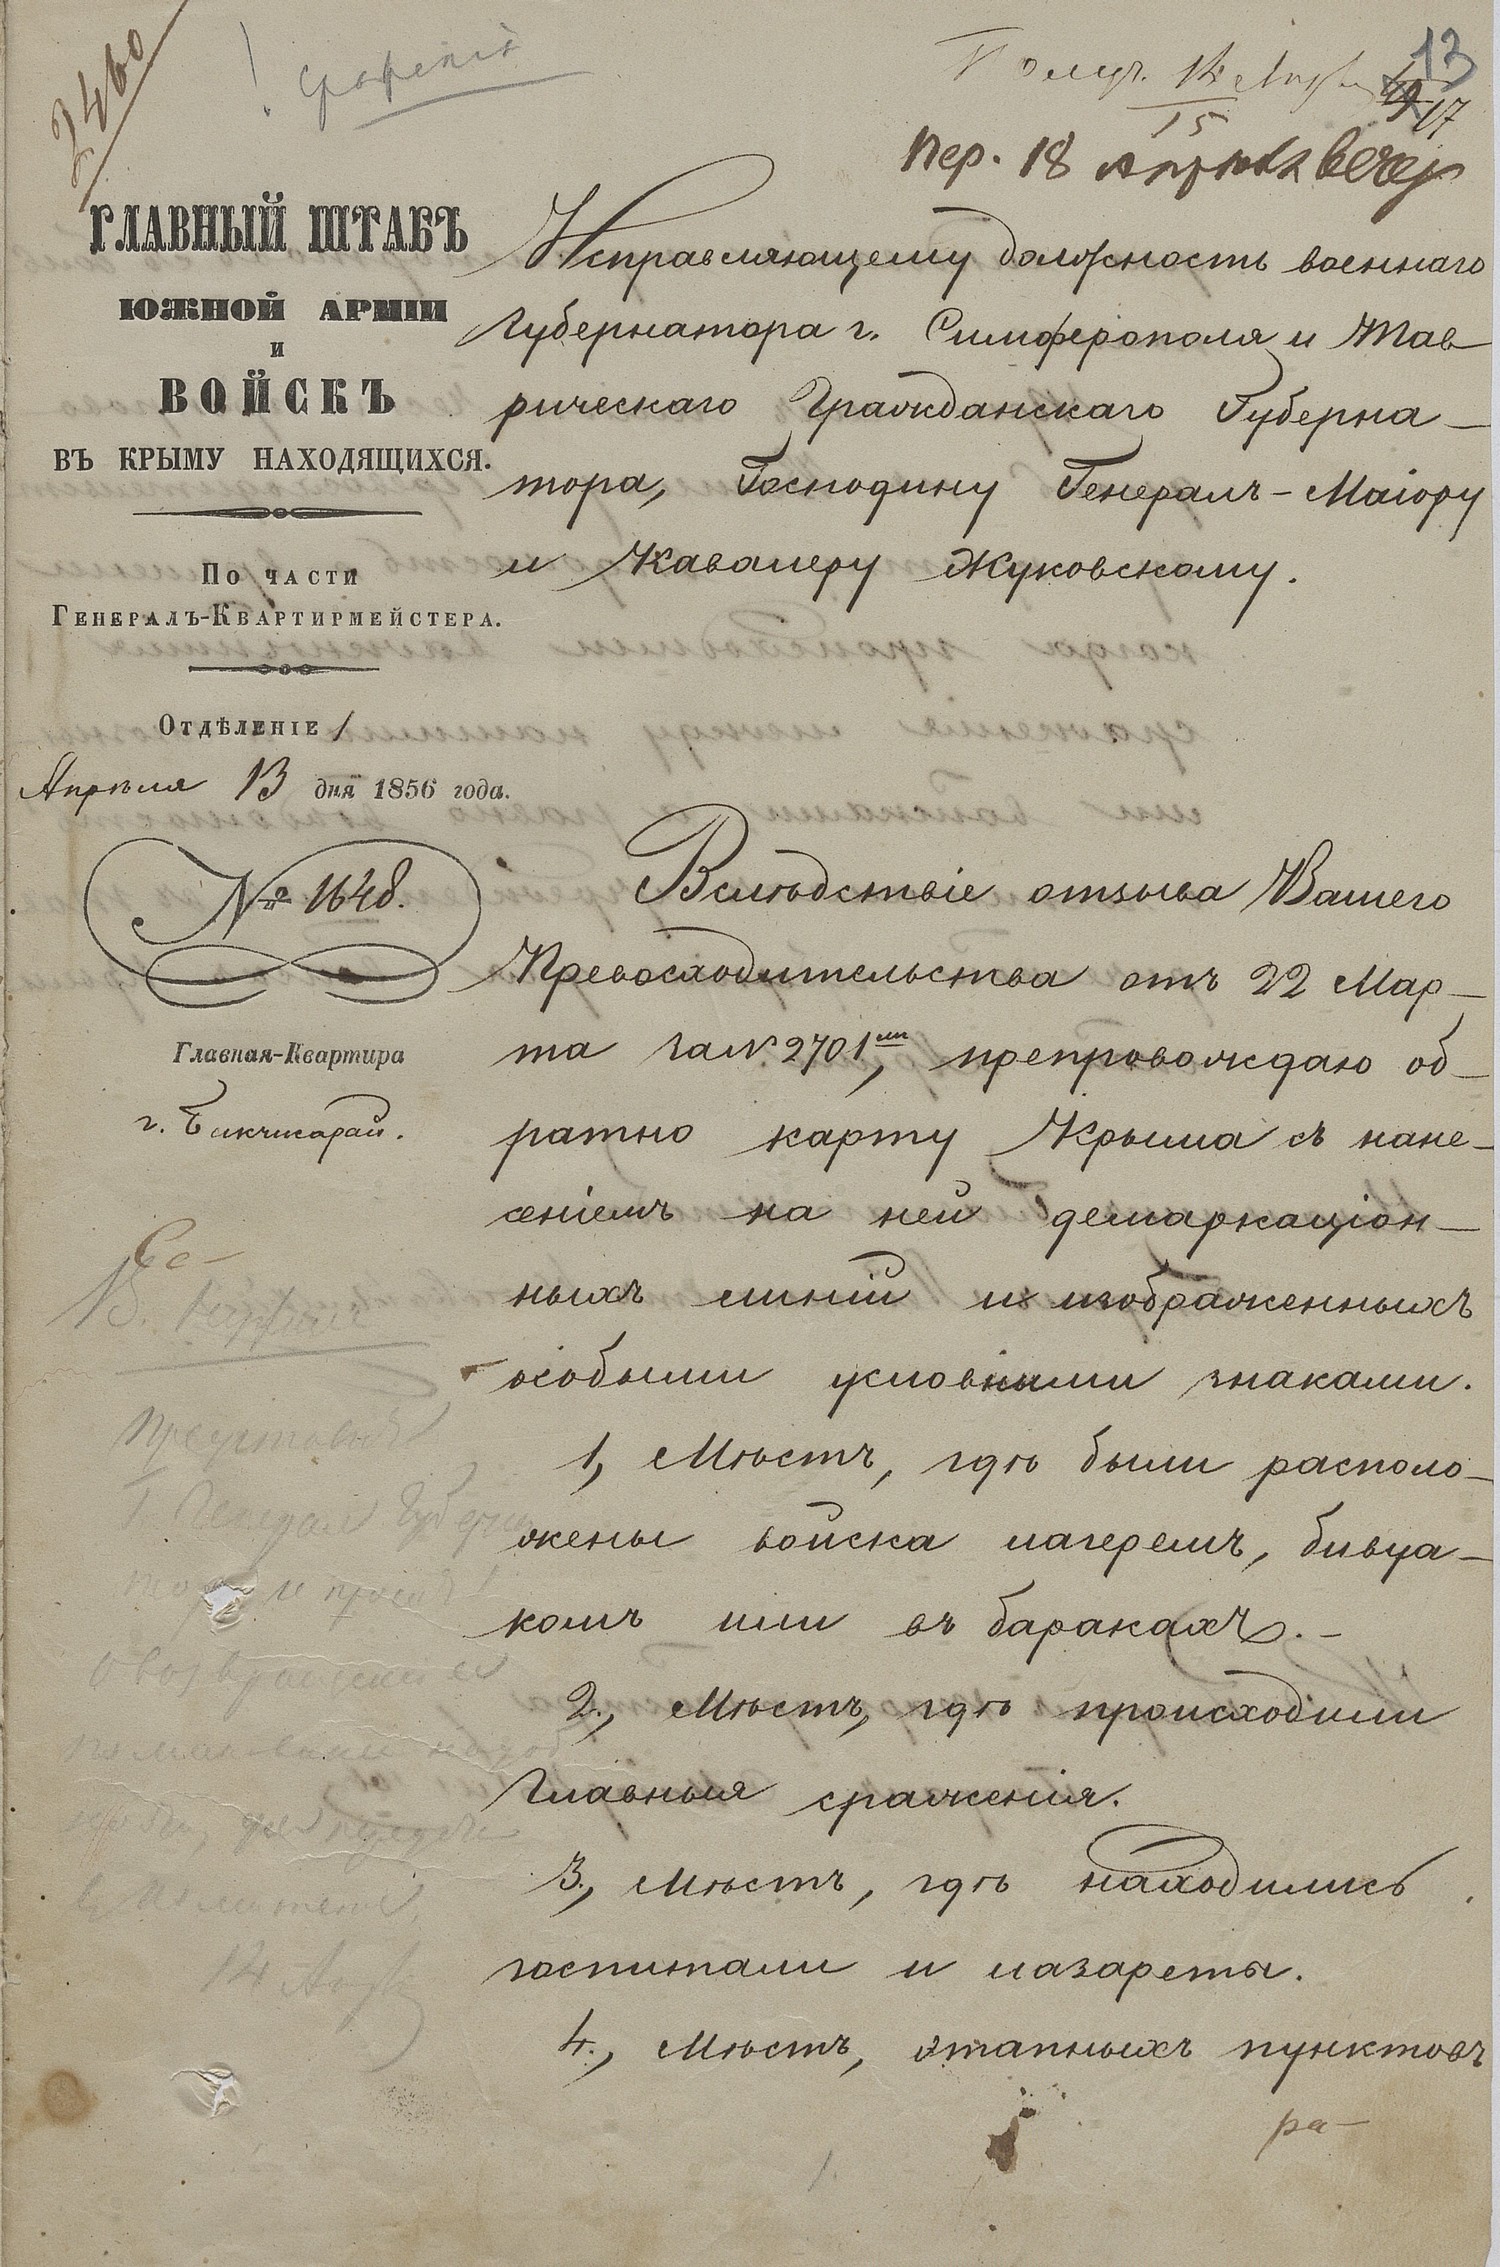 2460
Получ. 14 Апр
15
13
17
Пер. 18 Апреля вечер
ГЛАВНЫЙ ШТАБЪ
ЮЖНОЙ АРМІИ
И
ВОЙСКЪ
ВЪ КРЫМУ НАХОДЯЩИХСЯ.
ПО ЧАСТИ
ГЕНЕРАЛЪ-КВАРТИРМЕЙСТЕРА.
ОТДѢЛЕНІЕ 1
Апрѣля 13 дня 1856 года.
№ 1648.
Главная-Квартира
г. Бакчисарай.
Исправляющему должность военнаго
Губернатора г. Симферополя и Тав-
рическаго Гражданскаго Губерна-
тора, Господину Генералъ-Маіору
и Кавалеру Жуковскому.
Вслѣдствіе отзыва Вашего
Превосходительства отъ 22 Мар-
та за № 2701мъ, препровождаю об-
ратно карту Крыма съ нане-
сеніемъ на ней демаркаціон-
ныхъ линій и изображенныхъ
особыми условными знаками.
1, Мѣстъ, гдѣ были располо-
жены войска лагеремъ, бивуа-
комъ или въ баракахъ.-
2., Мѣстъ, гдѣ происходили
главныя сраженія.
3., Мѣстъ, гдѣ находились
госпитали и лазареты.
4., Мѣстъ, этапныхъ пунктовъ
ра-
14 Апр